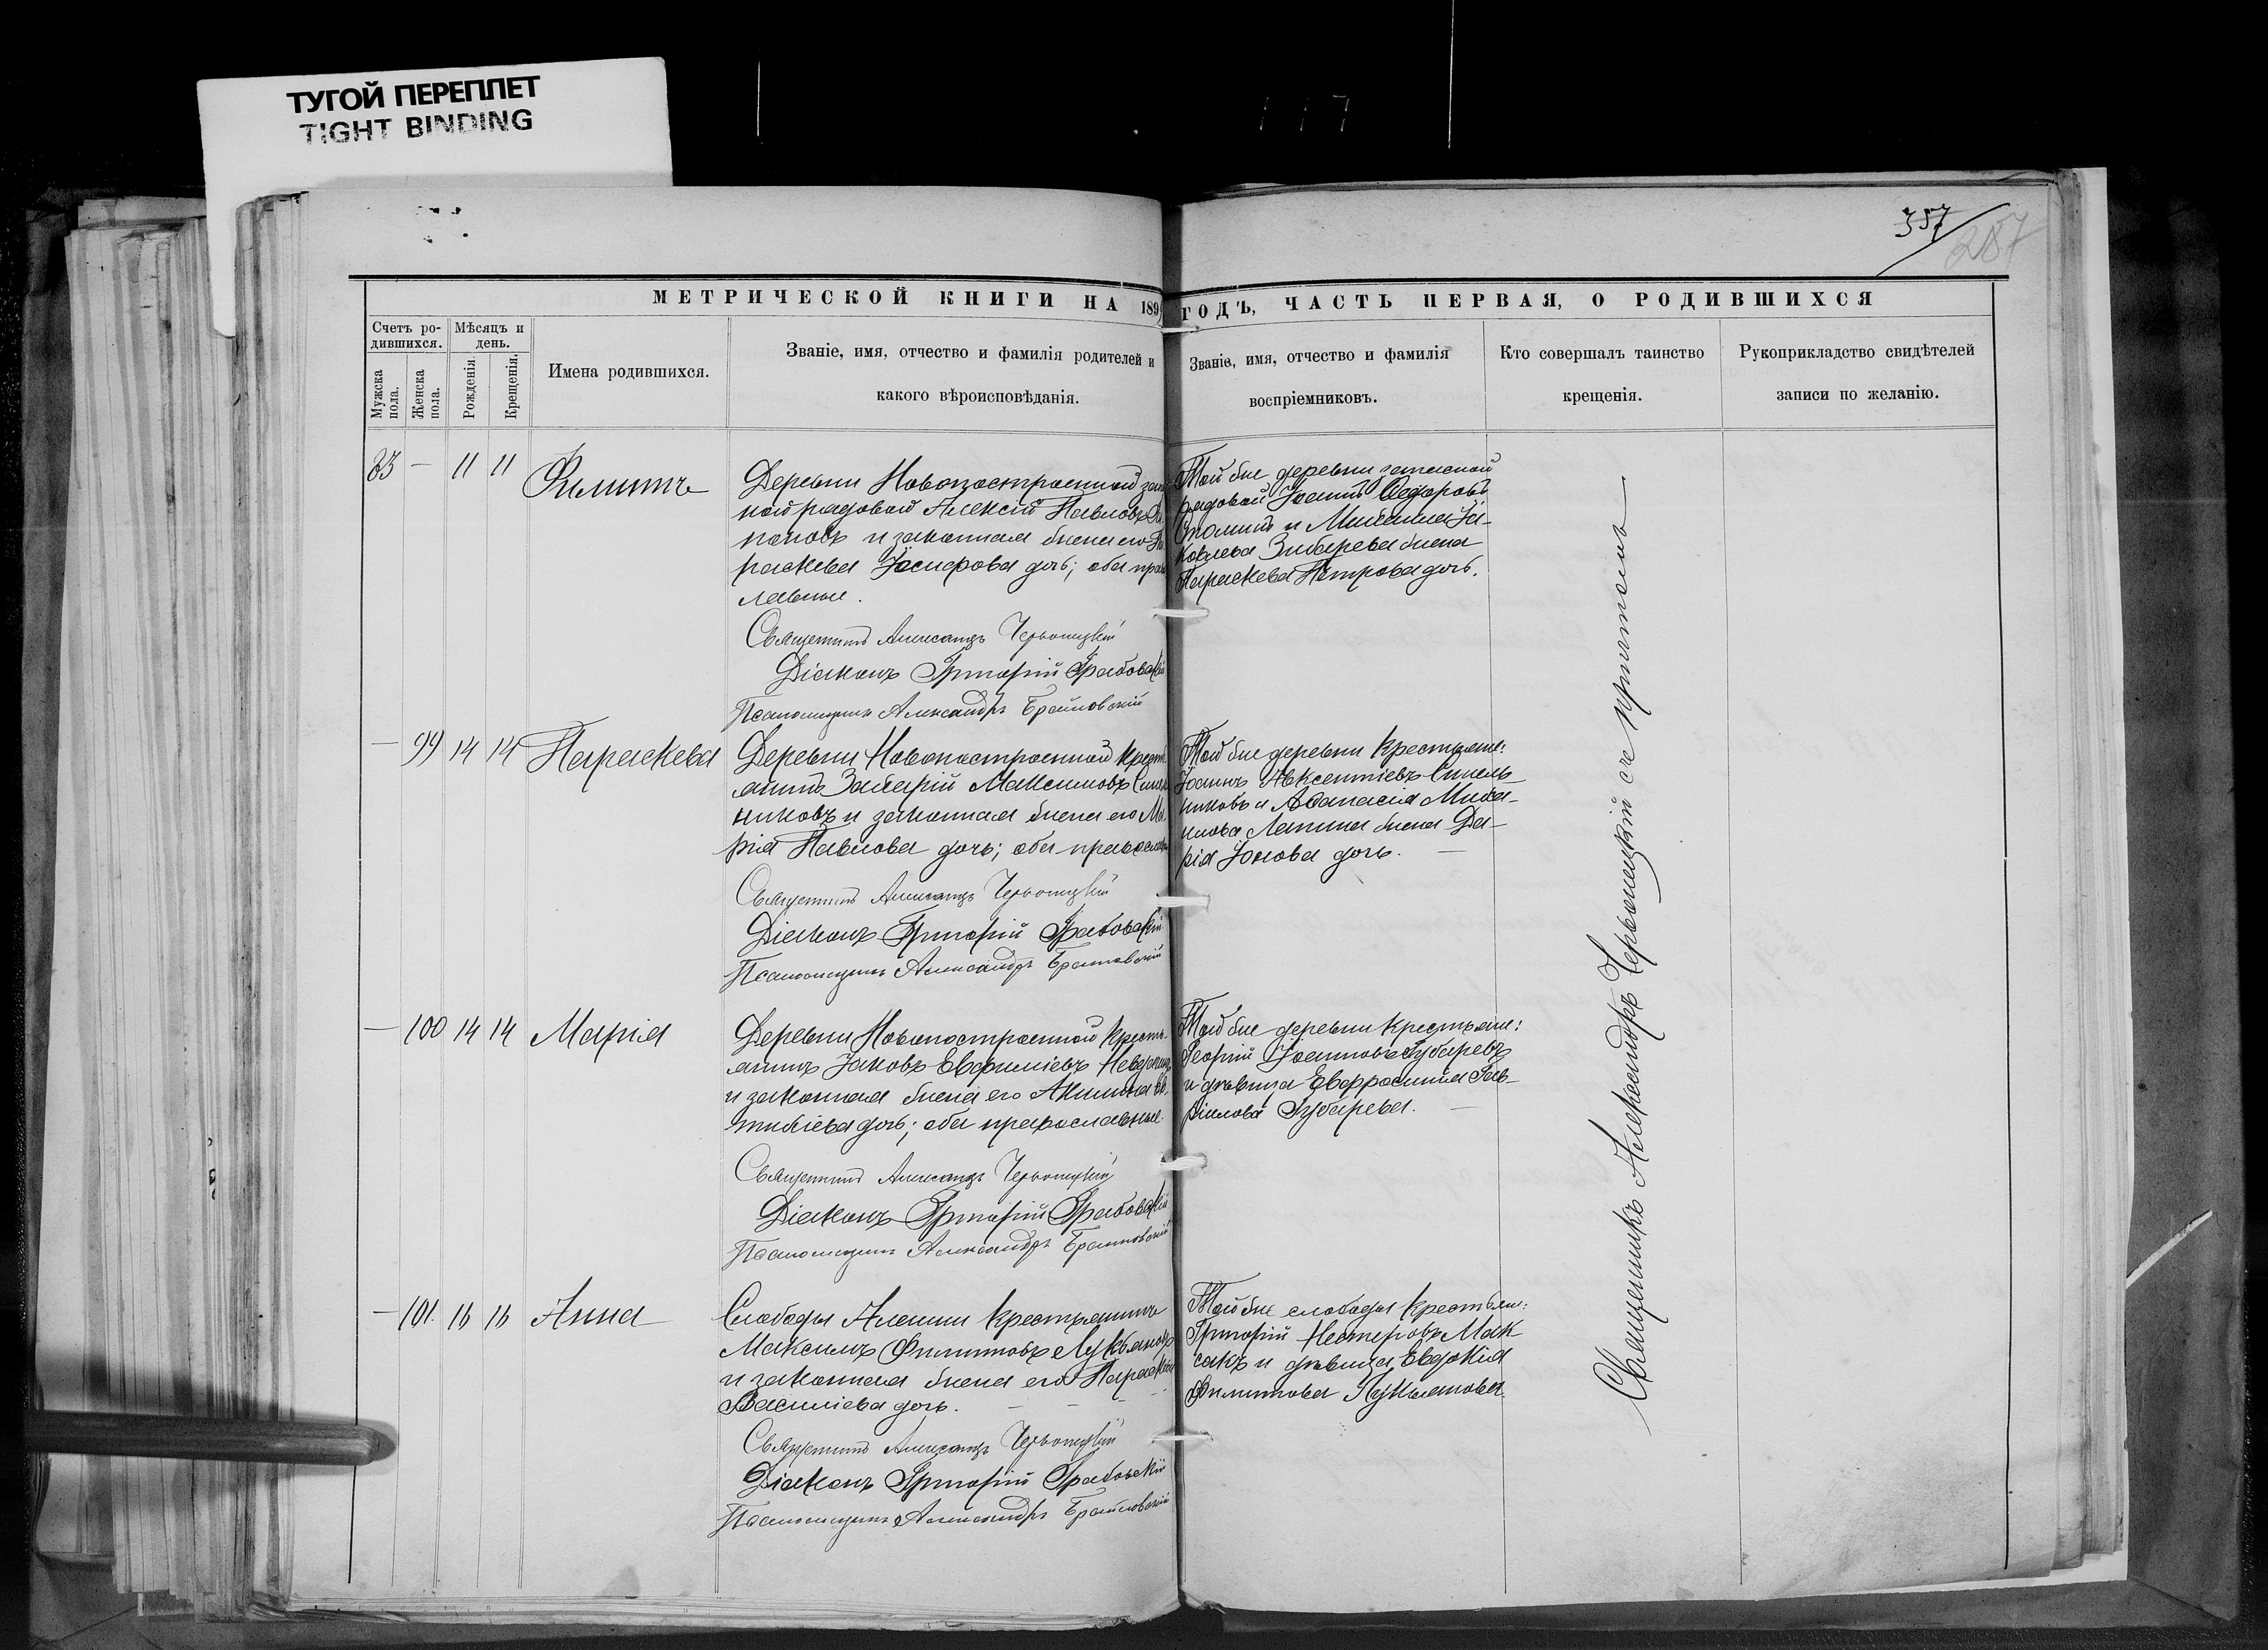 ТУГОЙ ПЕРЕПЛЕТ
TIGHT BINDING
117
357
287
МЕТРИЧЕСКОЙ КНИГИ НА 189
ГОДЪ, ЧАСТЬ ПЕРВАЯ, О РОДИВШИХСЯ
Счетъ ро-
дившихся.
Мужска пола.
Женска пола.
Мѣсяцъ и
день.
Рожденія
Крещенія.
Имена родившихся.
Званіе, имя, отчество и фамилія родителей и
какого вѣроисповѣданія.
Званіе, имя, отчество и фамилія
воспріемниковъ.
Кто совершалъ таинство
крещенія.
Рукоприкладство свидѣтелей
записи по желанію.
83 — 11 11 Филиппъ
Деревни Новопостроенной
рядовой Алексій Павловъ
и законная жена его
раскева Іосифова дочь; оба
лавные.
Священникъ Александръ Червонецкій
Діаконъ Григорій Грабовскій
Псаломщикъ Александръ
Той же деревни запасной
рядовой Іоаннъ Ѳедоровъ
и Михаила Іа-
ковлева Зибарева жена
Параскева Петрова дочь.
— 99 14 14 Параскева
Деревни Новопостроенной крест
янинъ Захарій Максимовъ
никовъ и законная жена его Ма
рія Павлова дочь; оба православ
Священникъ Александръ Червонецкій
Діаконъ Григорій Грабовскій
Псаломщикъ Александръ
Той же деревни крестьяне:
Іоаннъ Авксентіевъ Синель-
никовъ и Аѳанасія Миха-
илова Лапина жена Да-
рія Іонова дочь. —
— 100 14 14 Марія
Деревни Новопостроенной крест
янинъ Іаковъ Евфиміевъ
и законная жена его Акилина Ев
тихіева дочь; оба православные.
Священникъ Александръ Червонецкій
Діаконъ Григорій Грабовскій
Псаломщикъ Александръ
Той же деревни крестьяне:
Георгій Іоанновъ Губаревъ
и дѣвица Евфросинія Гав-
ріилова Губарева. —
— 101. 16 16 Анна
Слободы Алешки крестьянинъ
Максимъ Филипповъ Лукьяновъ
и законная жена его Параскева
Василіева дочь. — — —
Священникъ Александръ Червонецкій
Діаконъ Григорій Грабовскій
Псаломщикъ Александръ
Той же слободы крестьян:
Григорій Нестеровъ Мак
сакъ и дѣвица Евдокія
Филиппова Лукьянова.
Священникъ Александръ Червонецкій съ причтомъ